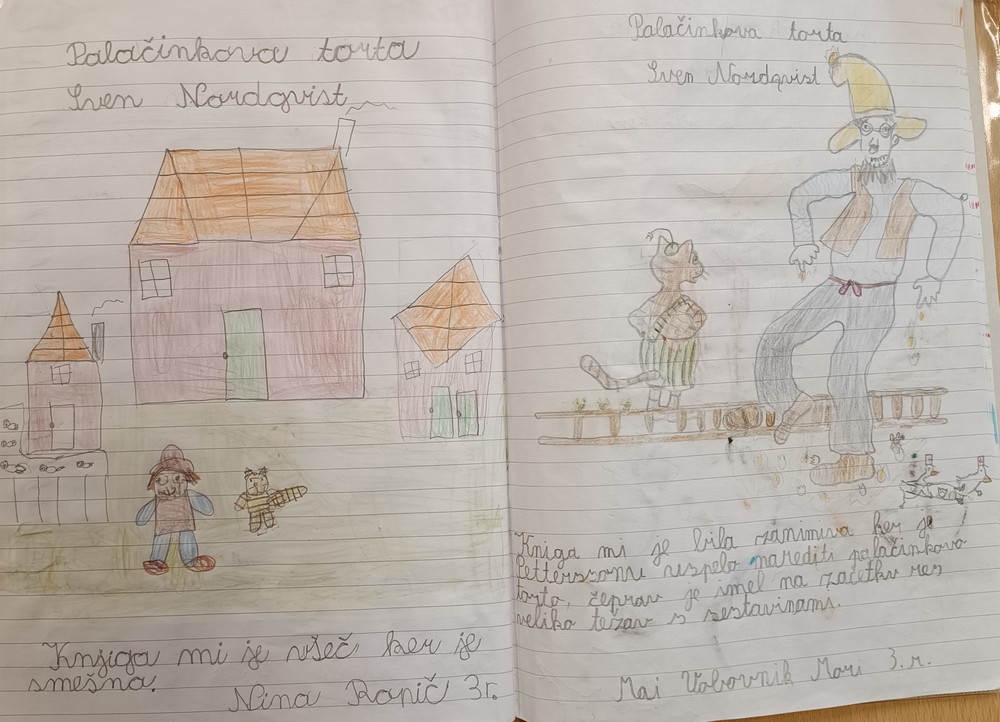 Palačinkova torta
Sven Nordqvist
Knjiga mi je všeč ker je
smešna.
Nina Ropič 3r.
Palačinkova torta
Sven Nordqvist
Kniga mi je bila zanimiva ker je
Petterssonu uspelo narediti palačinkovo
torto, čeprav je imel na začetku res
veliko težav s sestavinami.
Mai Vobovnik Mori 3. r.